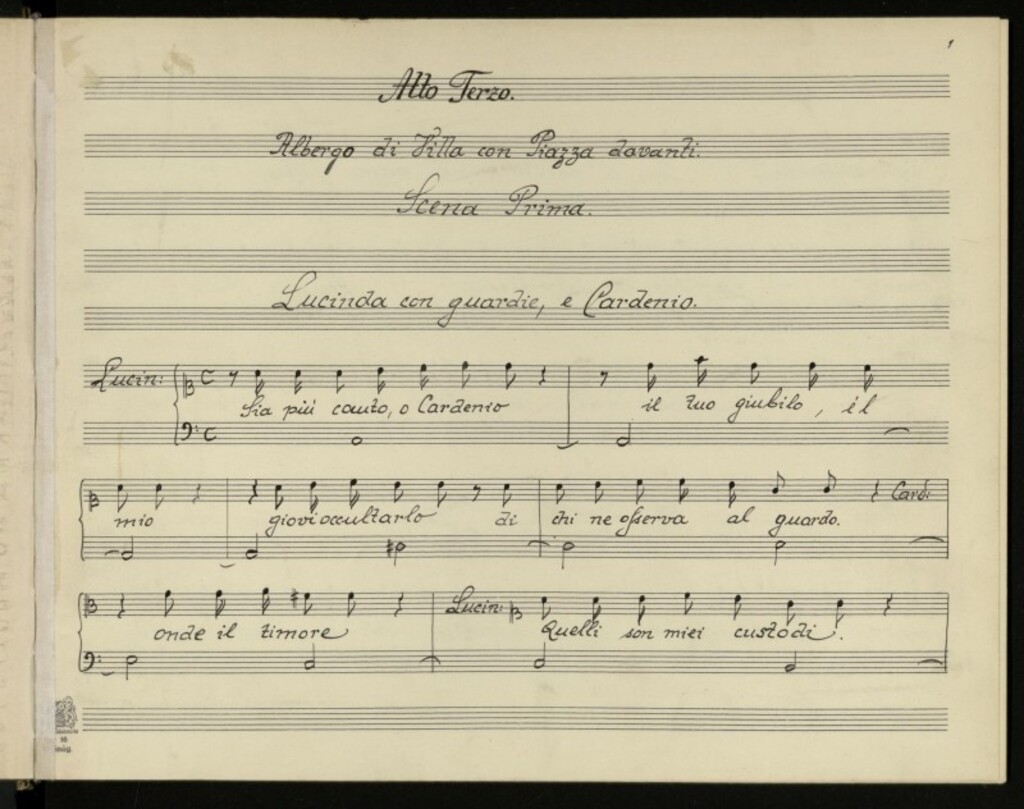 1
Atto Terzo.
Albergo di Villa con Piazza davanti.
Scena Prima.
Lucinda con guardie, e Cardenio.
Lucin:
Sia più cauto, o Cardenio il tuo giubilo, il
Card:
mio giovi occultarlo di chi ne osserva al guardo.
Lucin:
onde il timore Quelli son miei custodi.
16